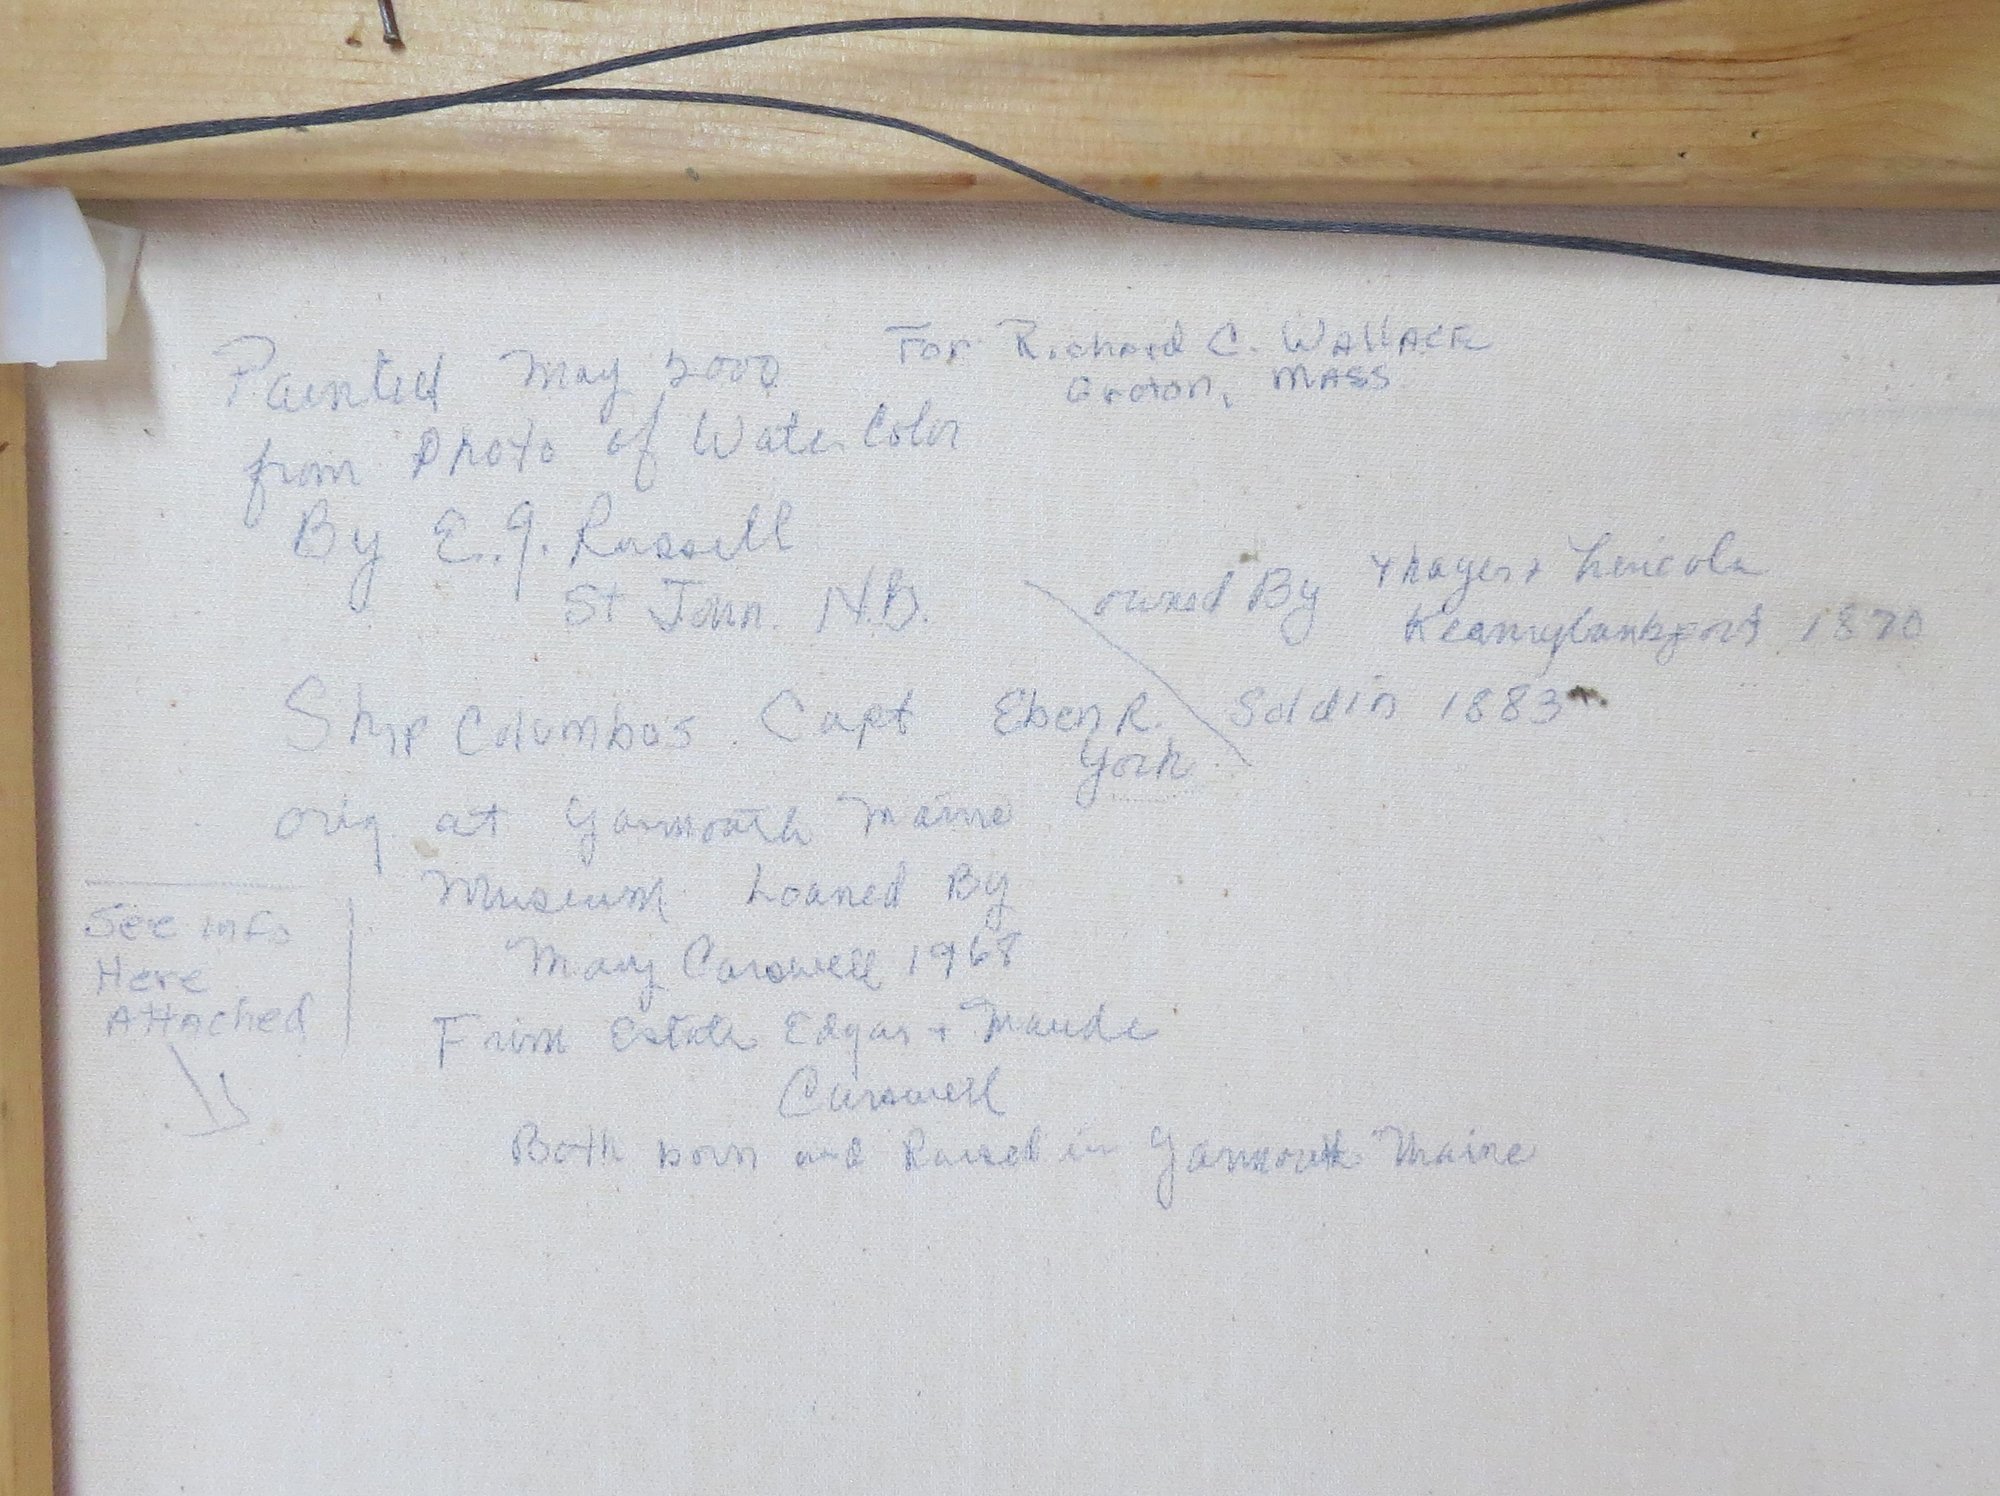 Painted May 2000
from Photo of Water Color
By E.J. Russell
St John. N.B.
For Richard C. Wallace
Groton, MASS.
owned By Thayer + Lincoln
Kennybunkport 1870
Sold in 1883
Ship Columbus. Capt Eben R.
York
orig. at Yarmouth Maine
Museum Loaned By
Mary Carswell 1968
From Estate Edgar + Maude
Carswell
Both born and Raised in Yarmouth Maine
See info
Here
Attached